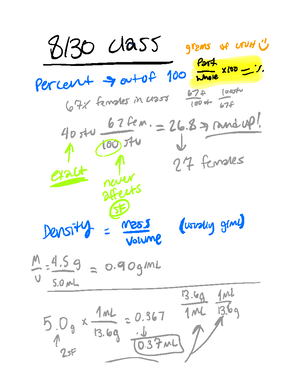 8/30 class
grams of cruid
Percent → out of 100 Part/Whole x100 = %
67% females in class 67f/100st 100st/67f
40 stu 67 fem./100 stu = 26.8 → round up!
exact never affects SF 27 females
Density = mass/volume (usually g/mL)
M/V = 4.5g/5.0mL = 0.90g/mL
13.6g/1mL 1mL/13.6g
5.0g x 1mL/13.6g = 0.367
2SF 0.37mL